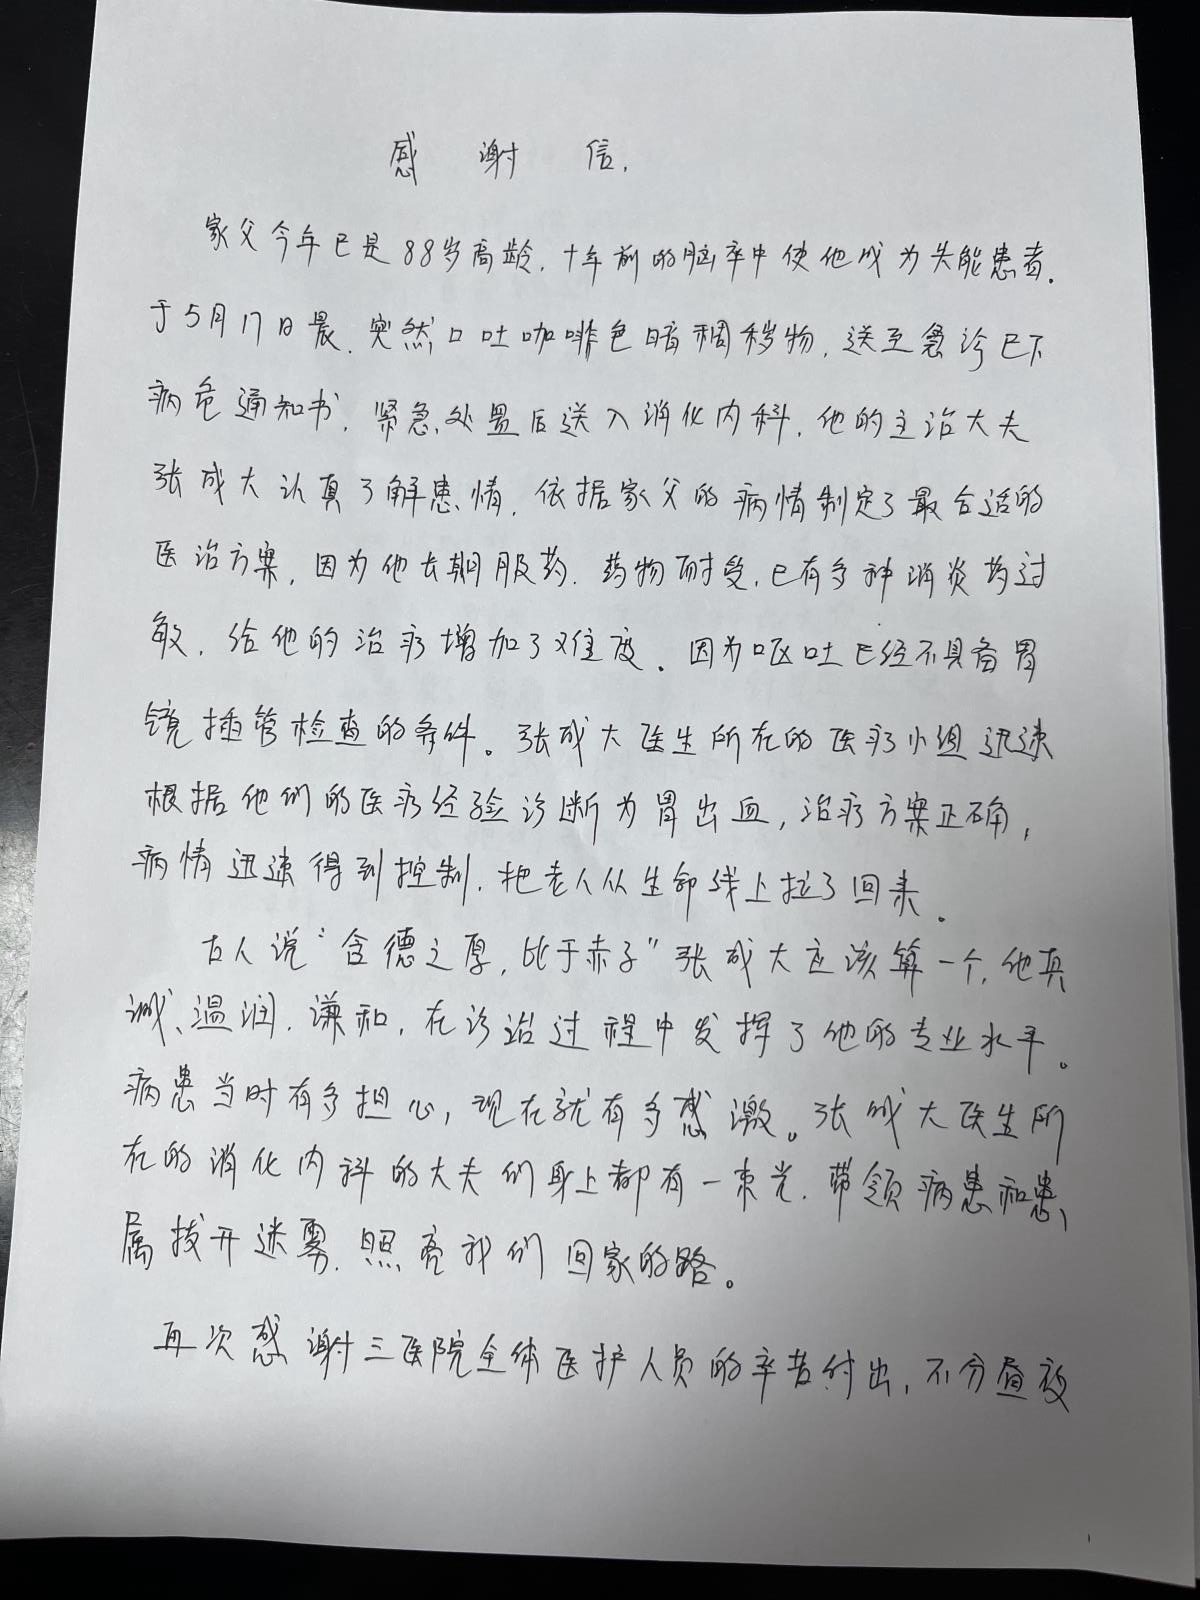 感谢信.
家父今年已是88岁高龄.十年前的脑卒中使他成为失能患者.
于5月17日晨.突然口吐咖啡色暗稠秽物,送至急诊已下
病危通知书.紧急处置后送入消化内科.他的主治大夫
张成大认真了解患情,依据家父的病情制定了最合适的
医治方案,因为他长期服药.药物耐受,已有多种消炎药过
敏,给他的治疗增加了难度.因为呕吐已经不具备胃
镜插管检查的条件。张成大医生所在的医疗小组迅速
根据他们的医疗经验诊断为胃出血,治疗方案正确,
病情迅速得到控制.把老人从生命线上拉了回来。
古人说“含德之厚,比于赤子”张成大应该算一个,他真
诚、温润.谦和.在诊治过程中发挥了他的专业水平。
病患当时有多担心,现在就有多感激。张成大医生所
在的消化内科的大夫们身上都有一束光.带领病患和患
属拨开迷雾.照亮我们回家的路。
再次感谢三医院全体医护人员的辛苦付出,不分昼夜